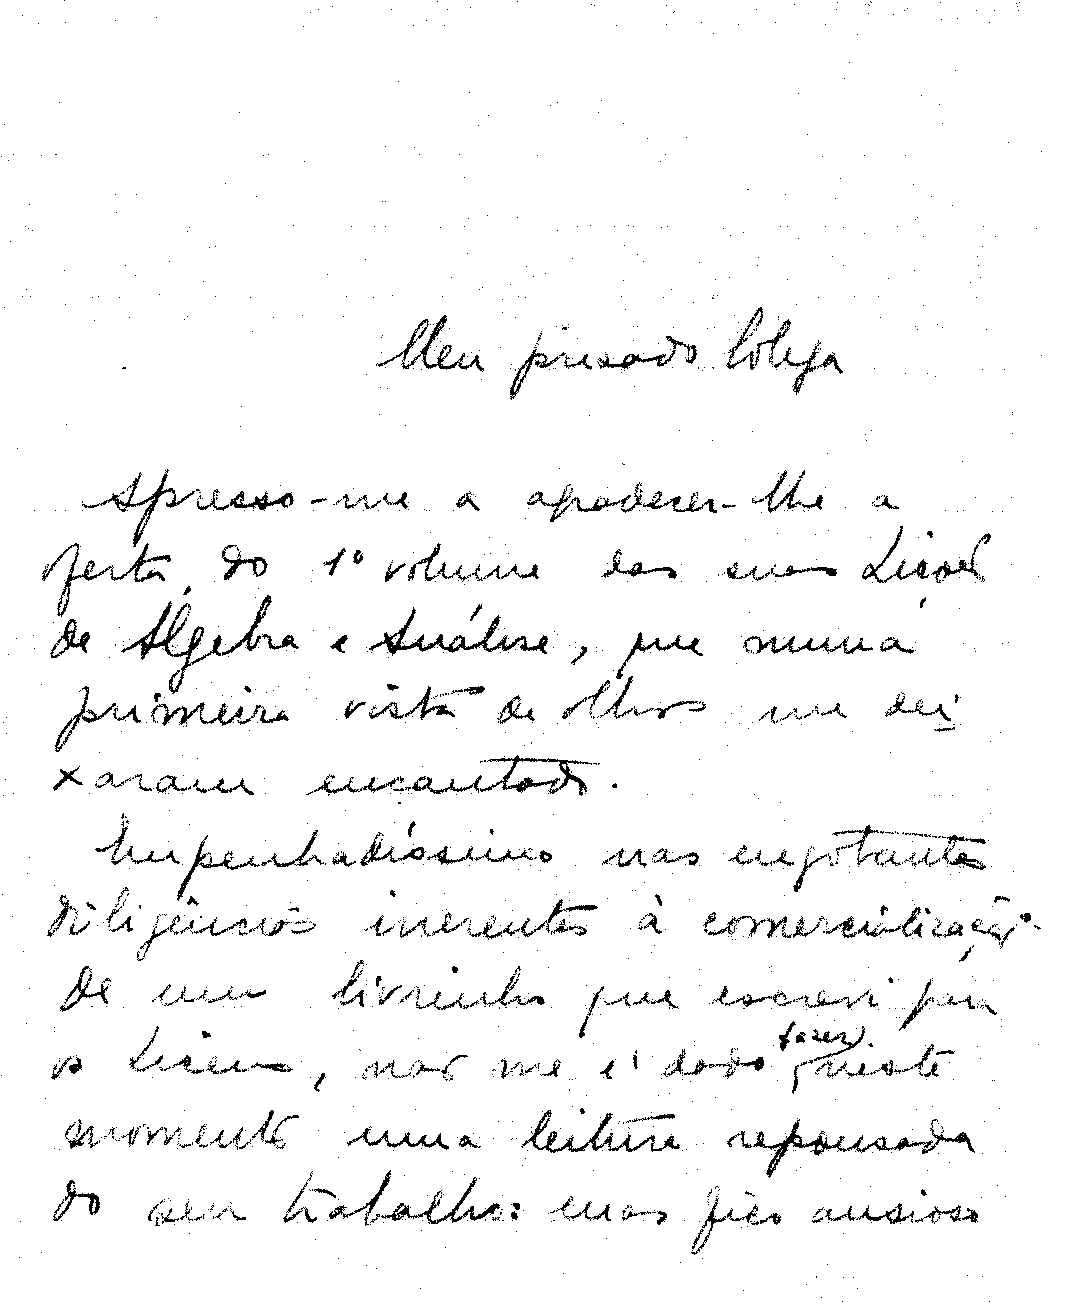 Meu presado Colega
Apresso-me a agradecer-lhe a
oferta do 1º volume das suas Lições
de Álgebra e Análise, que numa
primeira vista de olhos me dei
xaram encantado.
Empenhadíssimo nas esgotantes
diligências inerentes à comercialização
de um livrinho que escrevi para
os Liceus, não me é dado fazer neste
momento uma leitura repousada
do seu trabalho: mas fico ansioso